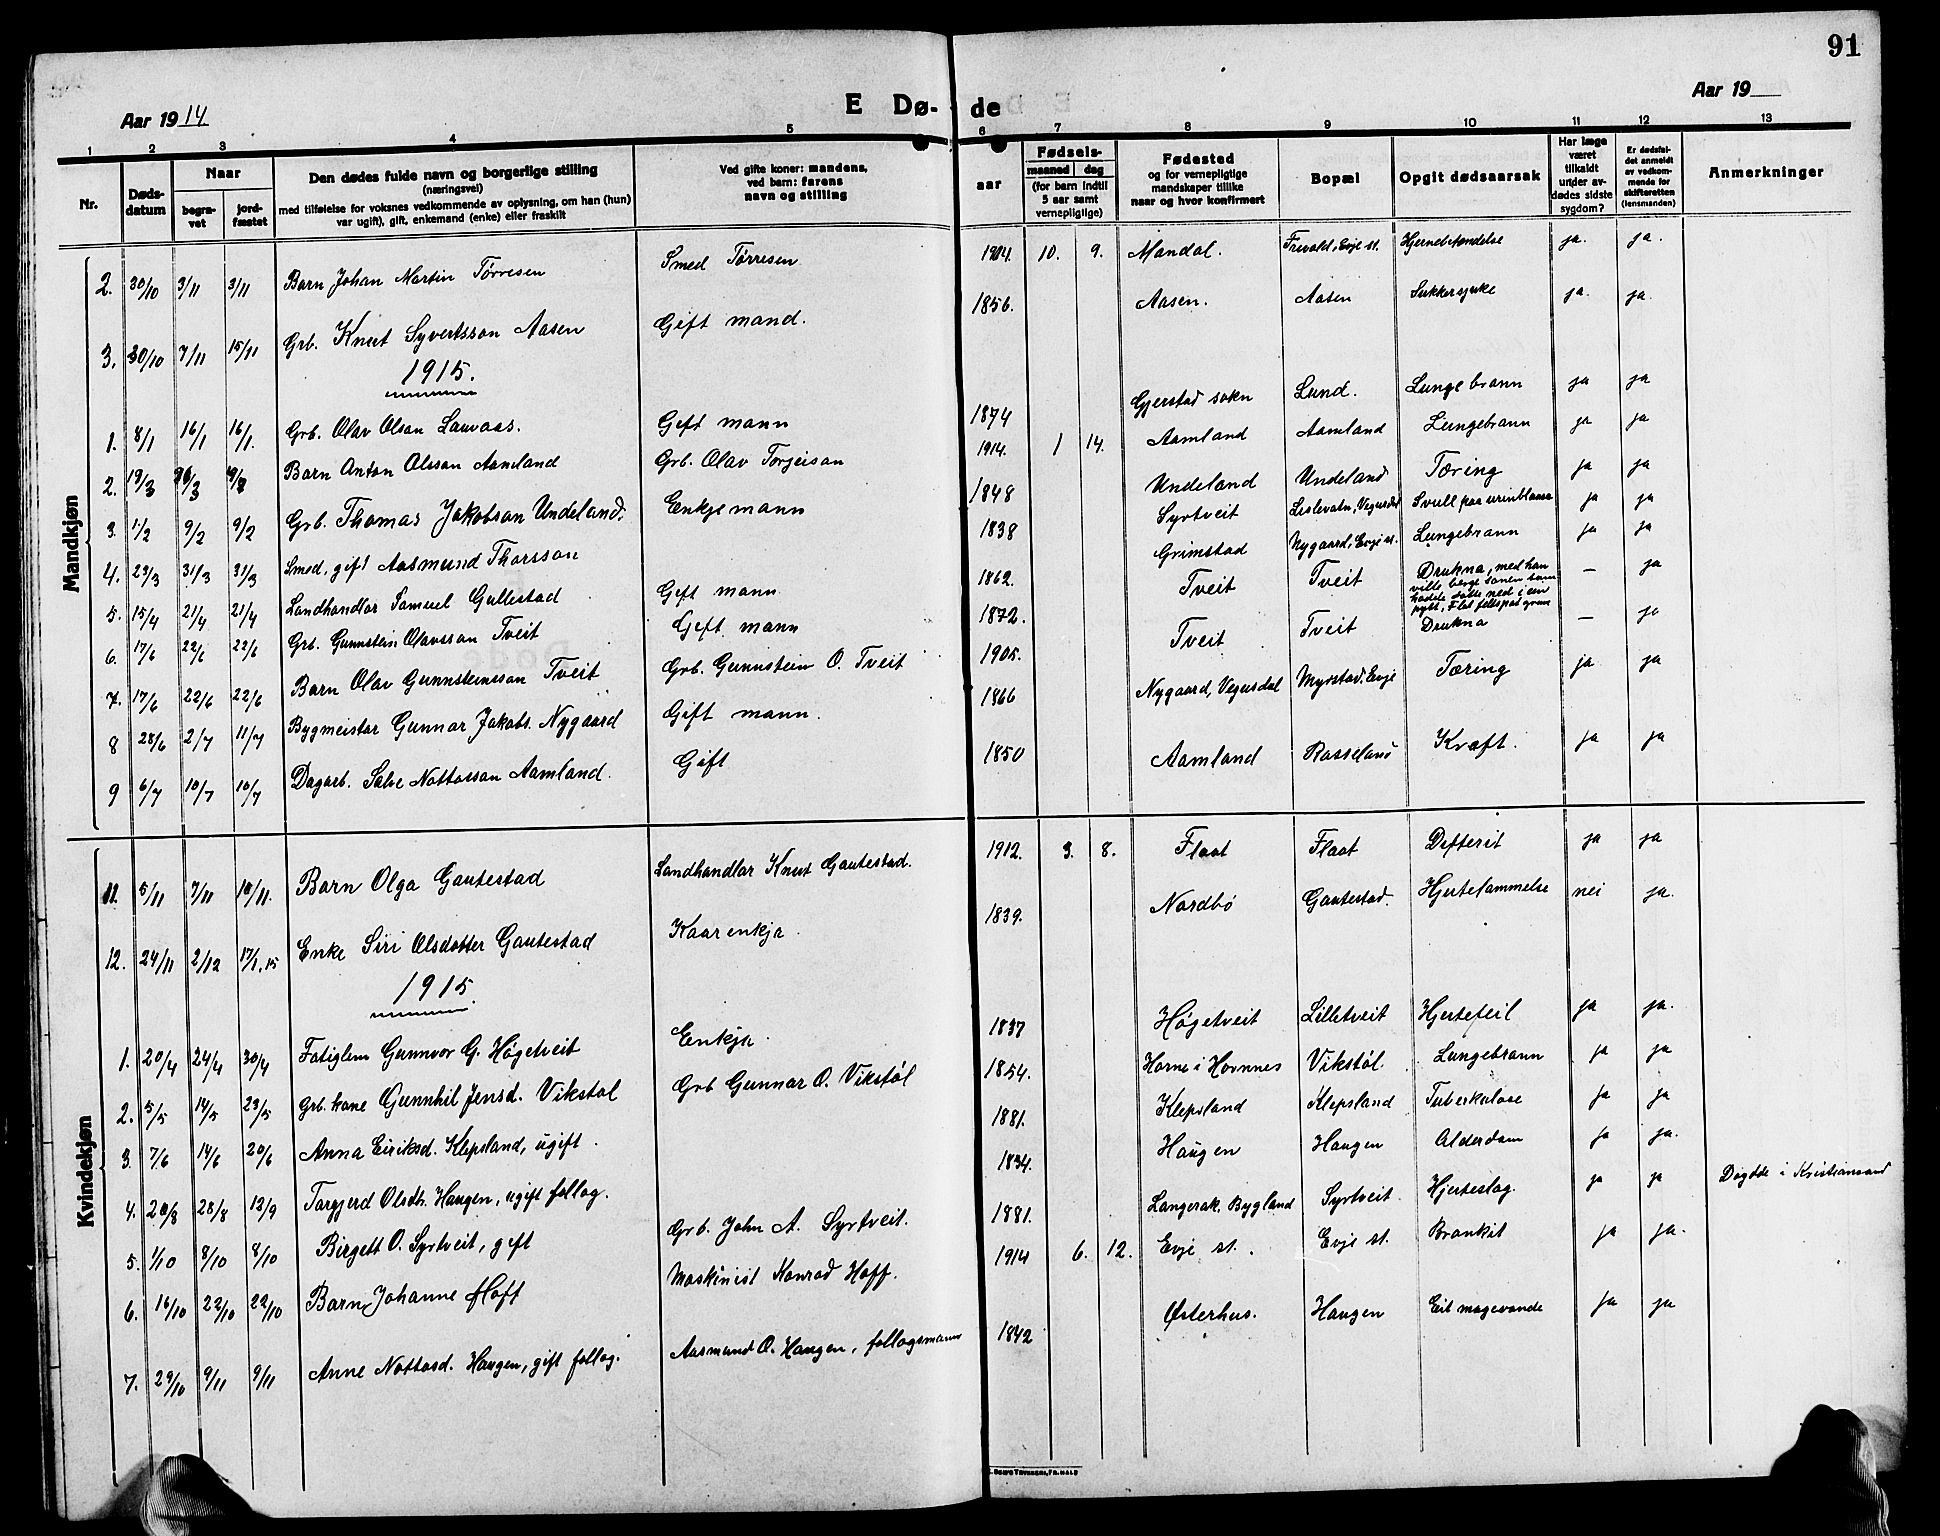 91
Aar 1914
E Dø-
de
Aar 19
1 2 3 4 5 6 7 8 9 10 11 12 13
Nr.
Døds-datum
Naar
begra-vet
jord-fæstet
Den dødes fulde navn og borgerlige stilling
(næringsvei)
med tilføielse for voksnes vedkommende av oplysning, om han (hun)
var ugift), gift, enkemand (enke) eller fraskilt
Ved gifte koner: mandens,
ved barn: farens
navn og stilling
aar
Fødsels-
maaned dag
(for barn indtil
5 aar samt
vernepligtige)
Fødested
og for vernepligtige
mandskaper tillike
naar og hvor konfirmert
Bopæl
Opgit dødsaarsak
Har læge
været
tilkaldt
under av-
dødes sidste
sygdom?
Er dødsfal-
det anmeldt
av vedkom-
mende for
skifteretten
(lensmanden)
Anmerkninger
Mandkjøn
2. 30/10 3/11 3/11 Barn Johan Martin Tørresen Smed Tørresen 1914. 10. 9. Mandal. Evje st. Hjernebetændelse ja. ja.
3. 30/10 7/11 15/11 Grb. Knut Syvertsson Aasen Gift mand. 1856. Aasen. Aasen Sukkersjuke ja. ja.
1915.
1. 8/1 16/1 16/1. Grb. Olav Olson Lauvaas. Gift mann 1874 Gjerstad sokn Lund. Lungebrann ja ja
2. 19/3 Barn Anton Olsson Aamland Grb. Olav Torjeison 1914. 1 14. Aamland Aamland Lungebrann ja ja
3. 1/2 9/2 9/2 Grb. Thomas Jakobson Undeland. Enkjemann 1848 Undeland Undeland Tæring ja ja
4. 23/3 31/3 31/3 Smed, gift Aasmund Thorsson 1838 Syrtveit Lislevatn, Vegusdal Svull paa urinblæra ja ja
5. 15/4 21/4 21/4 Landhandlar Samuel Gullestad Gift mann 1862. Grimstad Nygaard, Evje st. Lungebrann ja ja
6. 17/6 22/6 22/6 Grb. Gunnstein Olavsson Tveit Gift mann 1872. Tveit Tveit Drukna, med han vilde berge sonen som hadde dotte ned i ein pytt, Flat feltspatgruve – ja
7. 17/6 22/6 22/6 Barn Olav Gunnsteinsson Tveit Grb. Gunnstein O. Tveit 1905. Tveit Tveit Drukna – ja
8 28/6 2/7 11/7 Bygmeistar Gunnar Jakobs. Nygaard Gift mann. 1866 Nygaard, Vegusdal Myrstad, Evje Tæring ja ja
9 6/7 10/7 10/7 Dagarb. Salve Nottosson Aamland. Gift 1850 Aamland Rosseland Kræft. ja ja
Kvindekjøn
11. 5/11 7/11 10/11. Barn Olga Gautestad Landhandlar Knut Gautestad. 1912. 3. 8. Flaat Flaat Difterit ja ja
12. 24/11 2/12 17/1.15 Enke Siri Olsdotter Gautestad Kaarenkja. 1839. Nordbø Gautestad. Hjertelammelse nei ja.
1915.
1. 20/4 24/4 30/4 Fatiglem Gunnvor G. Høgetveit Enkja. 1837 Høgetveit Lilletveit Hjertefeil ja ja.
2. 5/5 14/5 23/5 Grb. kone Gunnhil Jensd. Vikstøl Grb Gunnar O. Vikstøl 1854. Horne i Hornnes Vikstøl. Lungebrann ja ja
3. 7/6 14/6 20/6 Anna Eiriksd. Klepsland, ugift. 1881. Klepsland Klepsland Tuberkulose ja ja
4. 20/8 28/8 12/9 Targjerd Olsdtr. Haugen, ugift follog. 1834. Haugen Haugen Alderdom ja ja.
5. 1/10 8/10 8/10 Birgett O. Syrtveit, gift Grb. John A. Syrtveit. 1881. Langerak, Bygland Syrtveit. Hjerteslag. ja ja Døydde i Kristiansand
6. 16/10 22/10 22/10 Barn Johanne Hoff Maskinist Konrad Hoff. 1914 6. 12. Evje st. Evje st. Bronkit ja ja.
7. 29/10 9/11 9/11 Anne Nottosd. Haugen, gift follog. Aasmund O. Haugen, follogsmann 1842 Østerhus. Haugen Eit magevonde ja ja